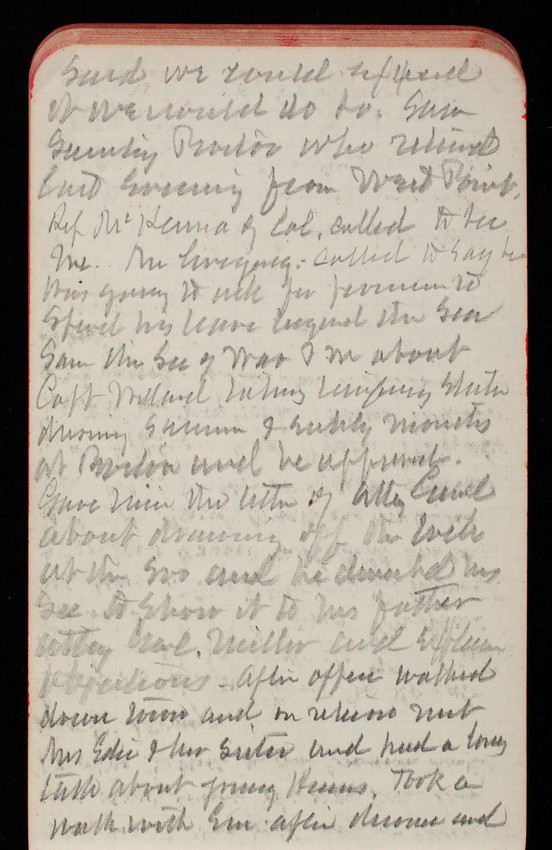 Said we could spend
it we would do so. Saw
Senator Proctor who returned
last evening from West Point.
Rep McKenna of Cal. called to see
me. called to say he
was going to ask for permission to
spend his leave beyond the Sea
Saw the Sec of War & me about
Capt taking temporary
during Summer & months
at Proctor and he approved.
Gave him the letter of atty
about drawing off the
at the and he directed his
Sec to show it to his father
atty Miller and explain
objections. After office walked
down town and on return met
Mrs Edie & her sister and had a long
talk about young Kerns. Took a
walk with Em after dinner and